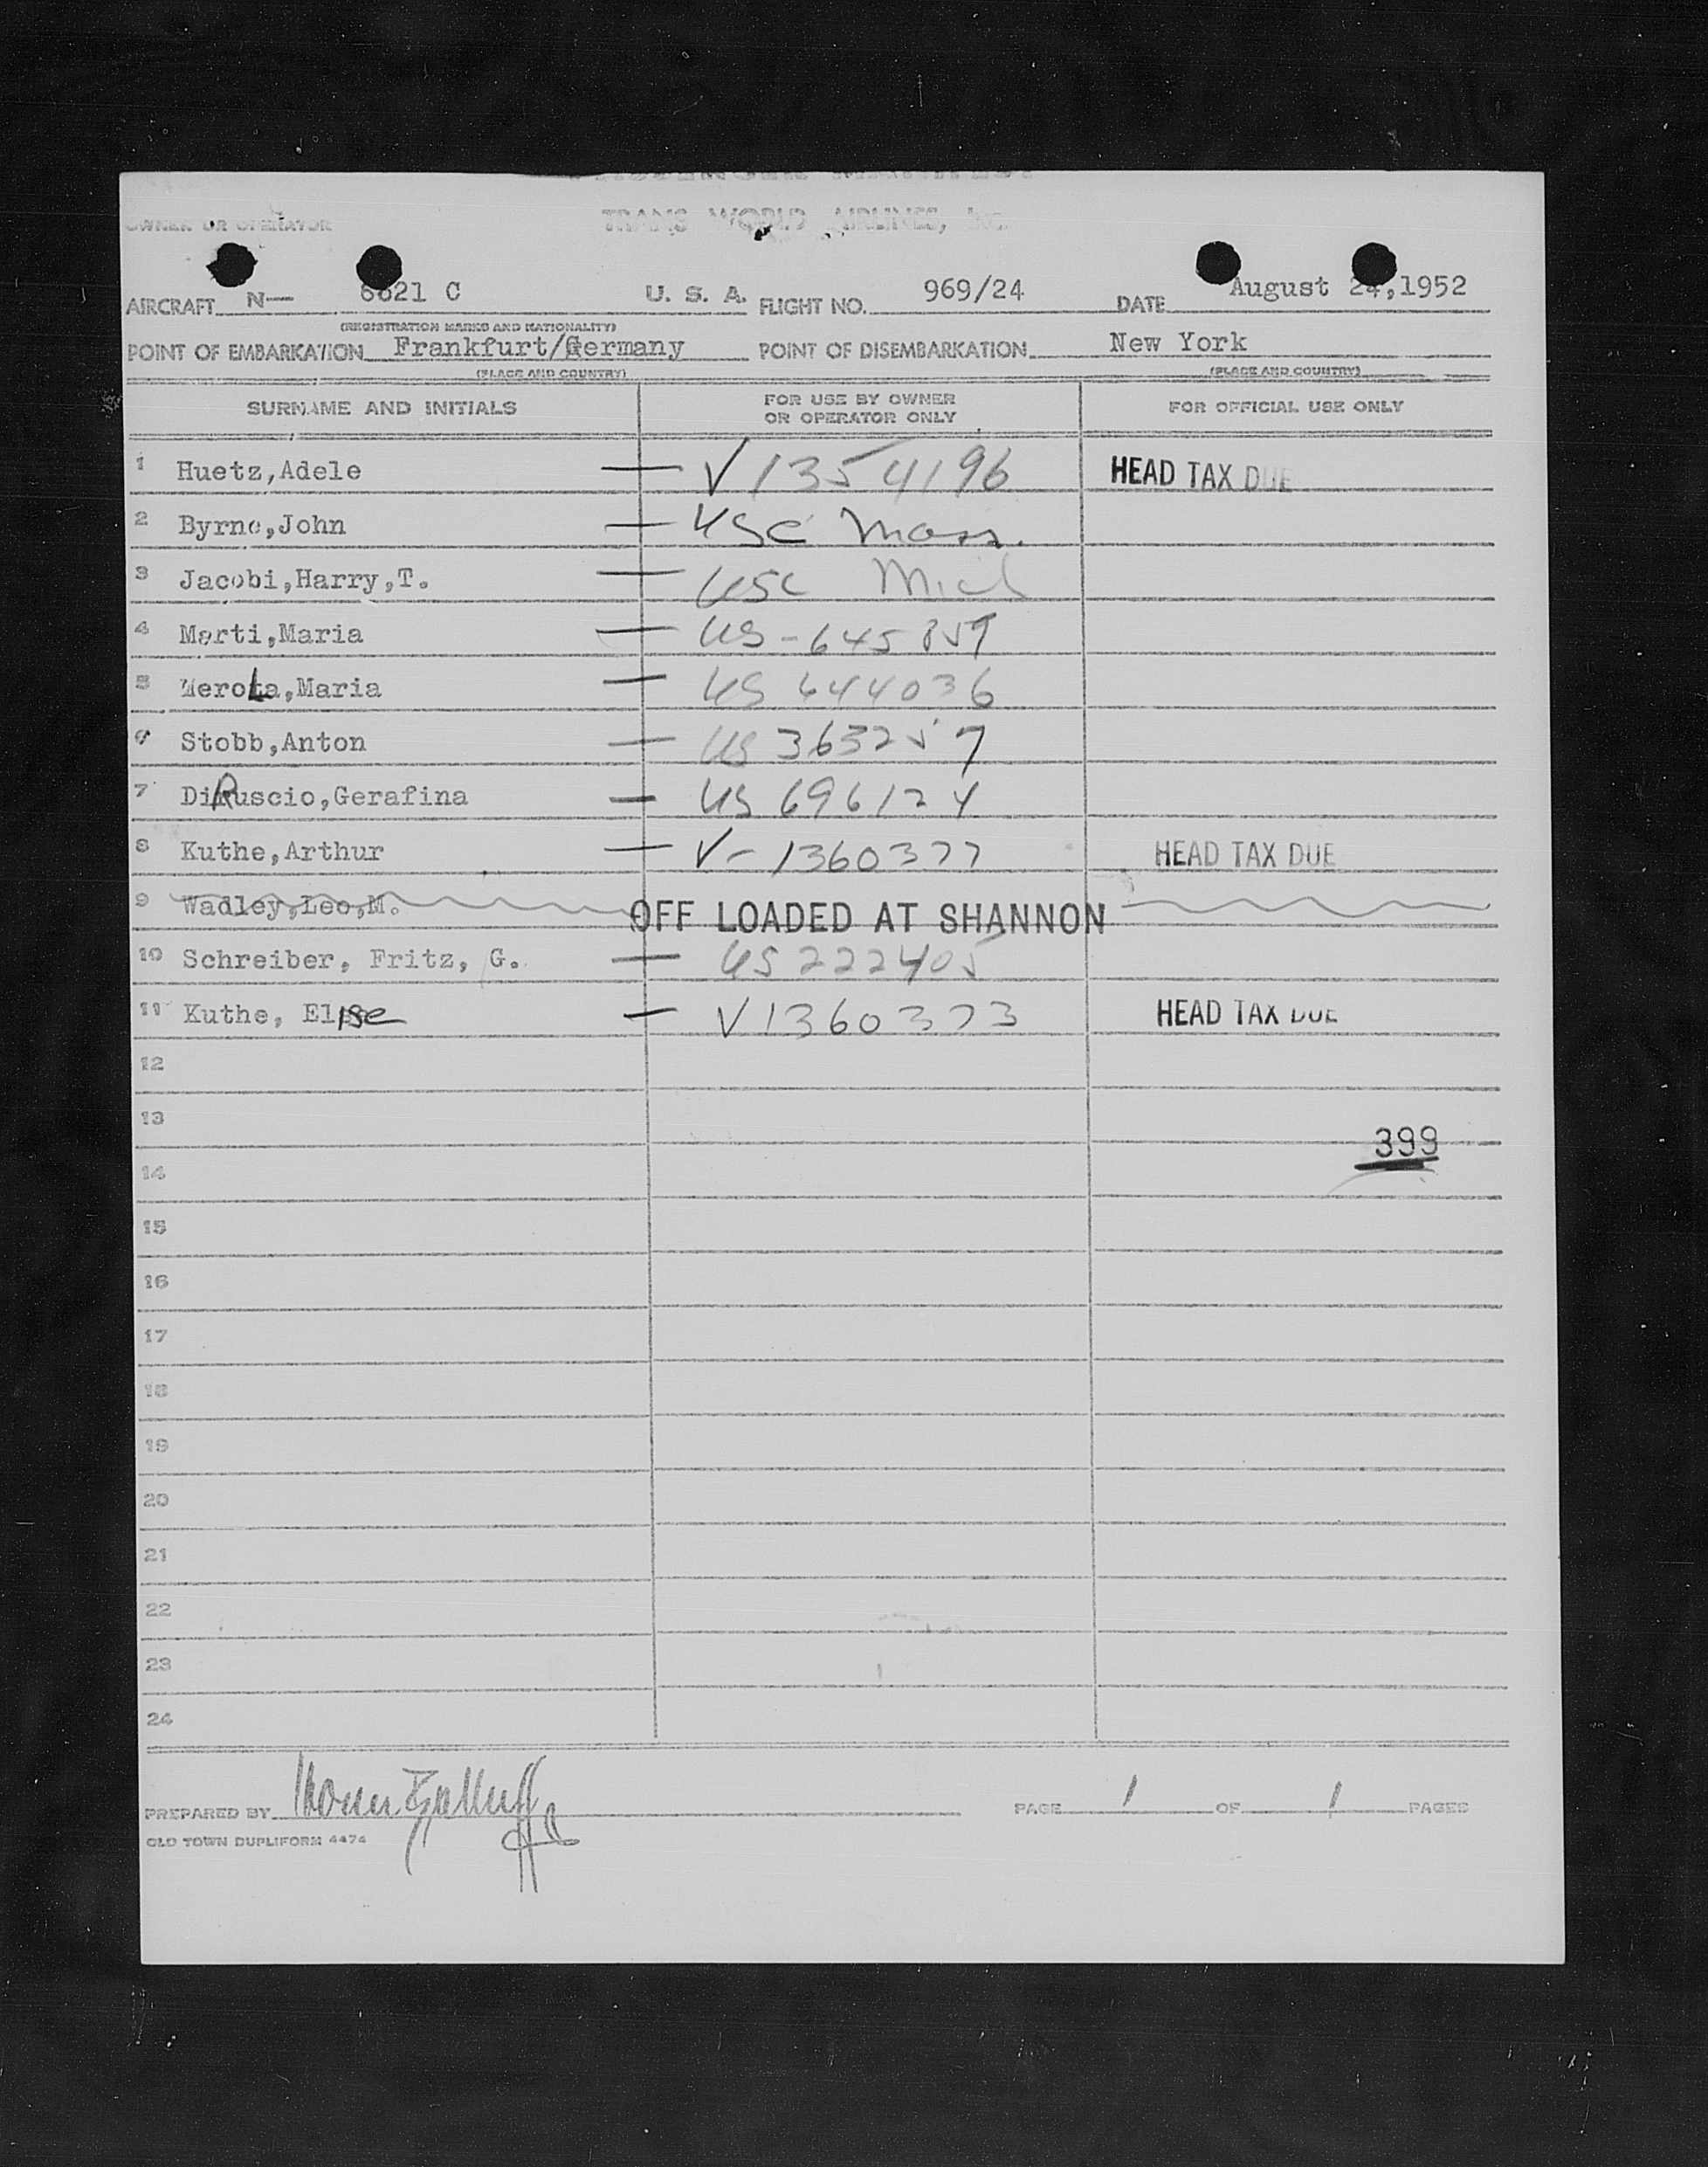 PASSENGER MANIFEST
OWNER OR OPERATOR TRANS WORLD AIRLINES, Inc.
AIRCRAFT N— 6021 C U. S. A. FLIGHT NO. 969/24 DATE August 24,1952
(REGISTRATION MARKS AND NATIONALITY)
POINT OF EMBARKATION Frankfurt/Germany POINT OF DISEMBARKATION New York
(PLACE AND COUNTRY) (PLACE AND COUNTRY)
SURNAME AND INITIALS FOR USE BY OWNER OR OPERATOR ONLY FOR OFFICIAL USE ONLY
1 Huetz,Adele — V 1354196 HEAD TAX DUE
2 Byrne,John — USC Mass.
3 Jacobi,Harry,T. — USC Mich
4 Marti,Maria — US-645859
5 MeroLa,Maria — US 644036
6 Stobb,Anton — US 363257
7 DiRuscio,Gerafina — US 696124
8 Kuthe,Arthur — V-1360377 HEAD TAX DUE
9 Wadley,Leo,M. OFF LOADED AT SHANNON
10 Schreiber, Fritz, G. — US 222405
11 Kuthe, Elise — V1360373 HEAD TAX DUE
12
13
399
14
15
16
17
18
19
20
21
22
23
24
PREPARED BY PAGE 1 OF 1 PAGES
OLD TOWN DUPLIFORM 4474